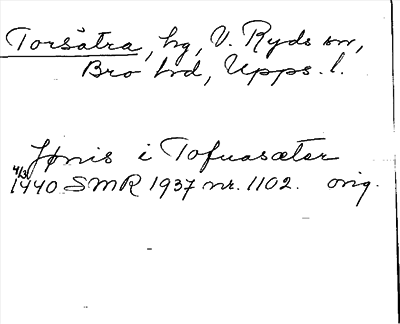 Torsåtra, hg, V. Ryds sn,
Bro hd, Upps. l.
Jönis i Tofuasæter
4/3 1440 SMR 1937 nr. 1102. orig.